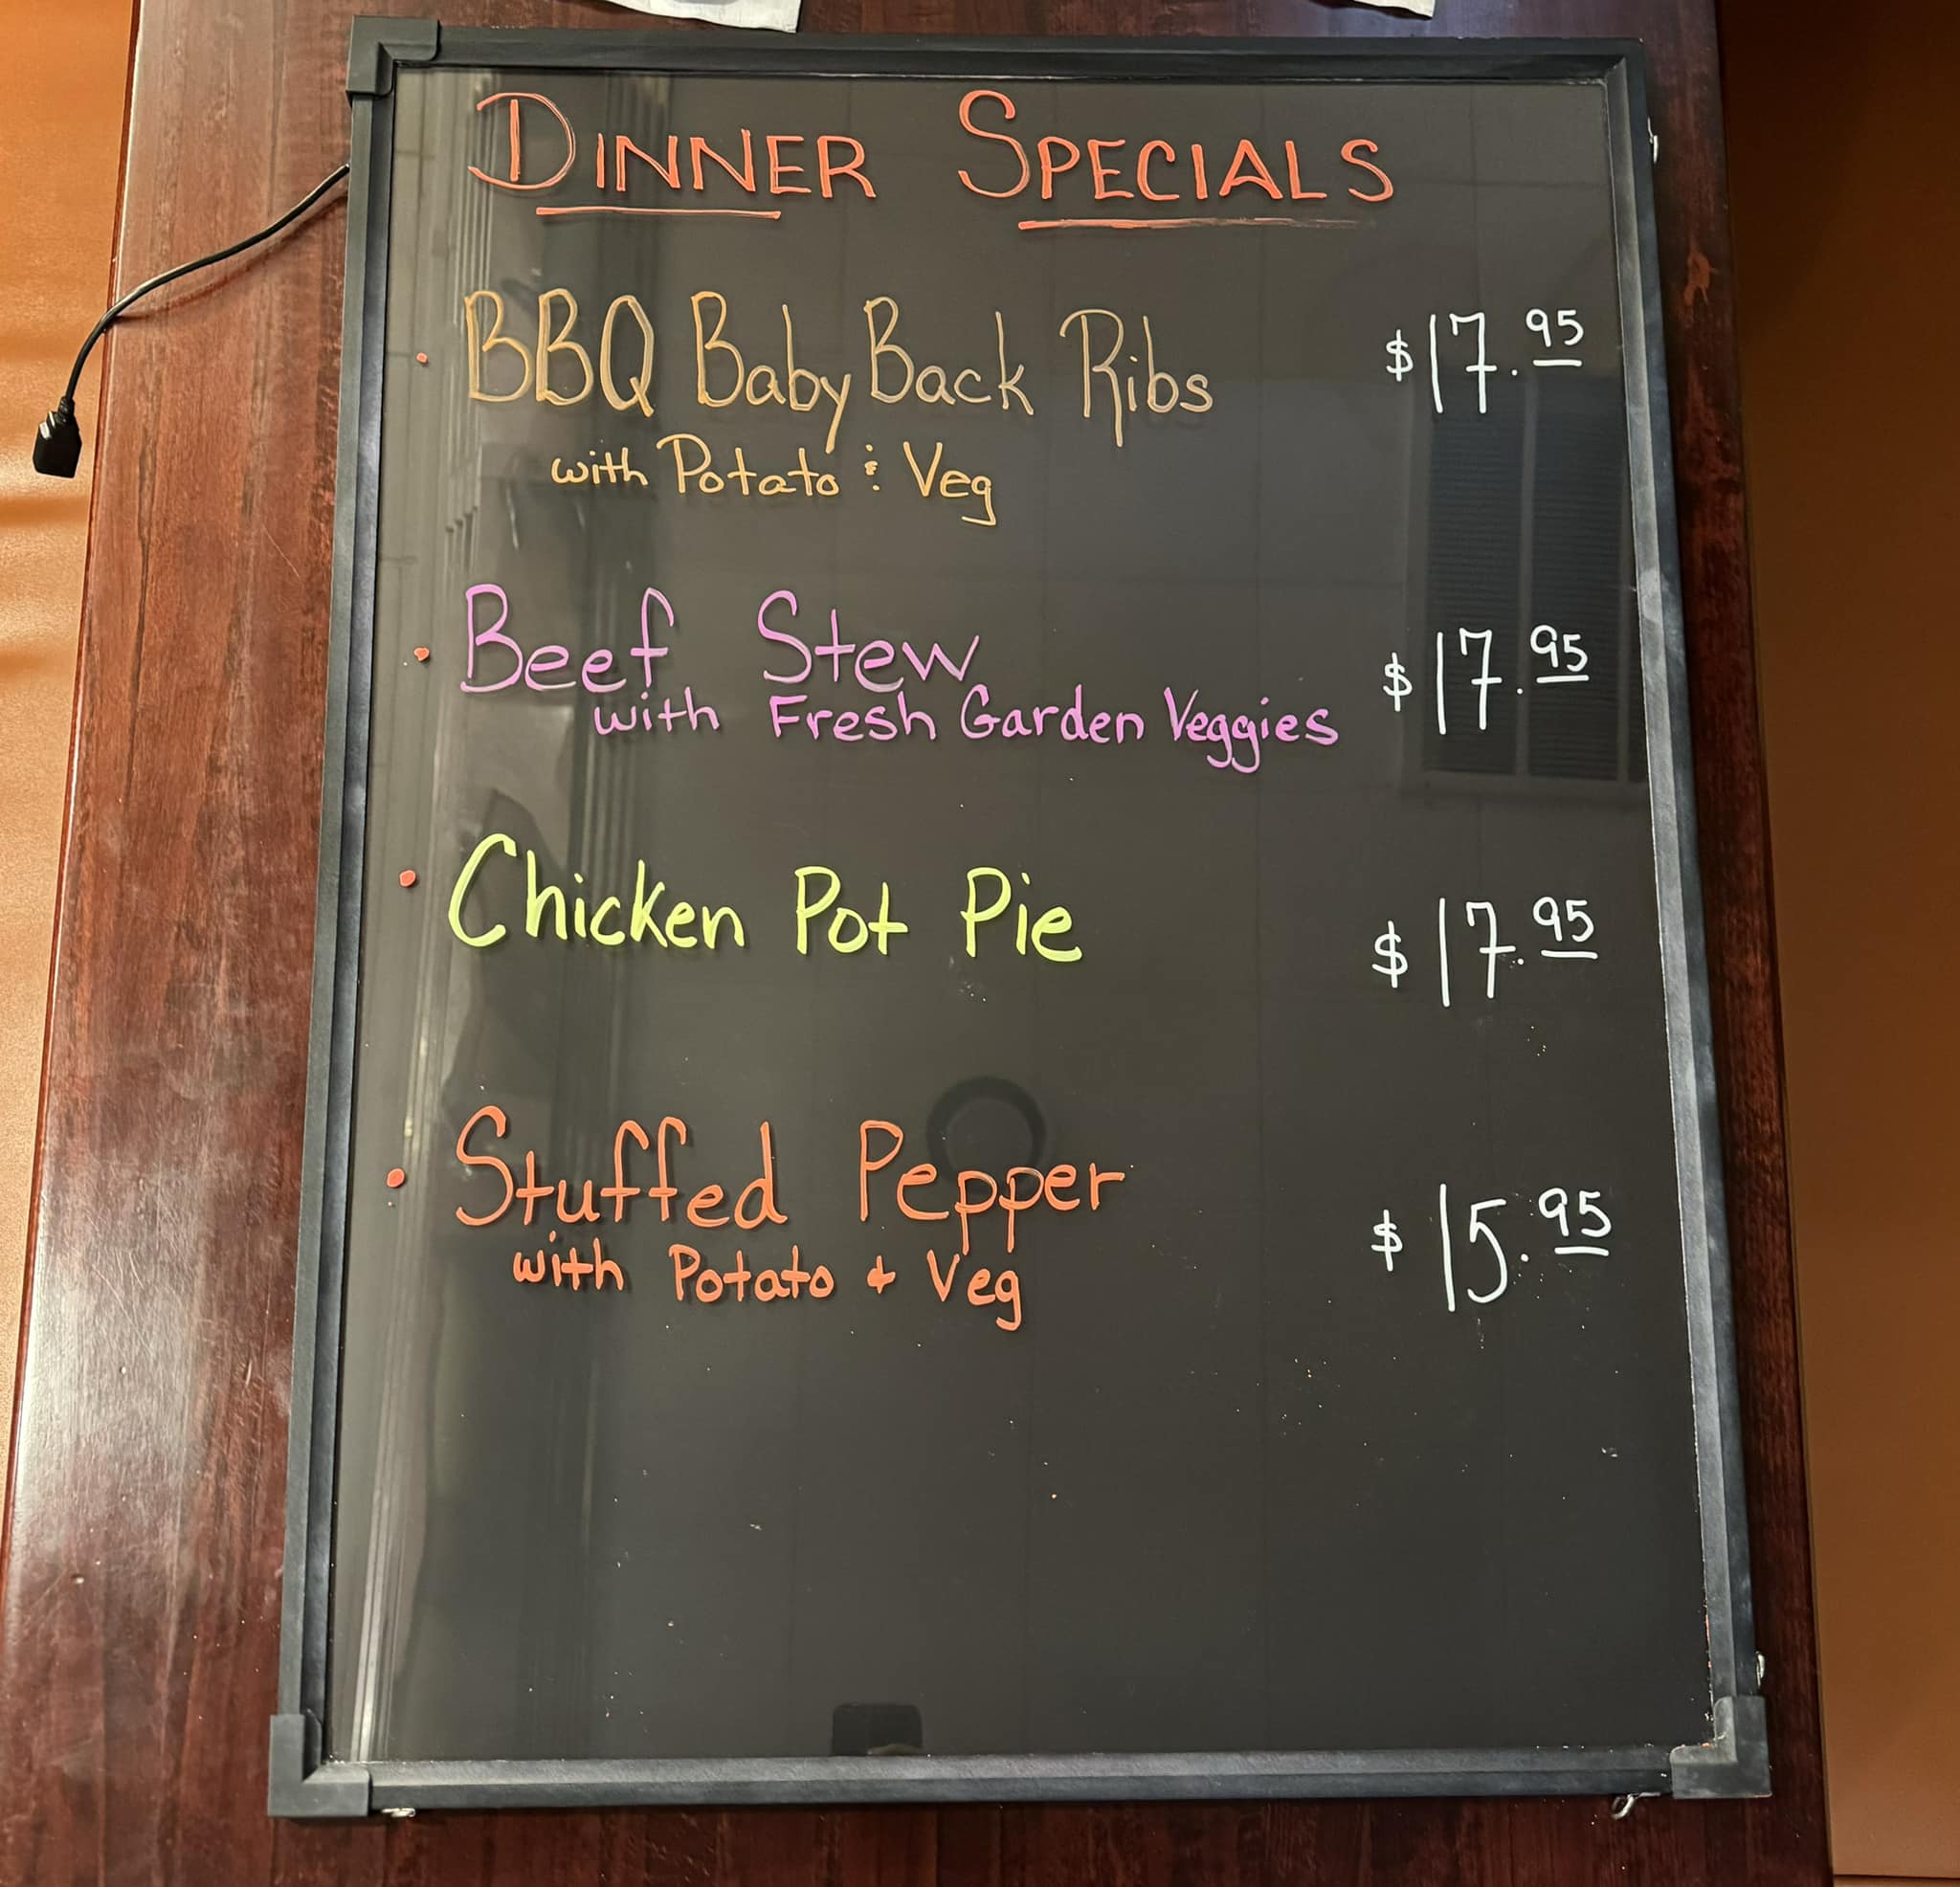 DINNER SPECIALS
• BBQ Baby Back Ribs $17.95
with Potato & Veg
• Beef Stew $17.95
with Fresh Garden Veggies
• Chicken Pot Pie $17.95
• Stuffed Pepper $15.95
with Potato + Veg